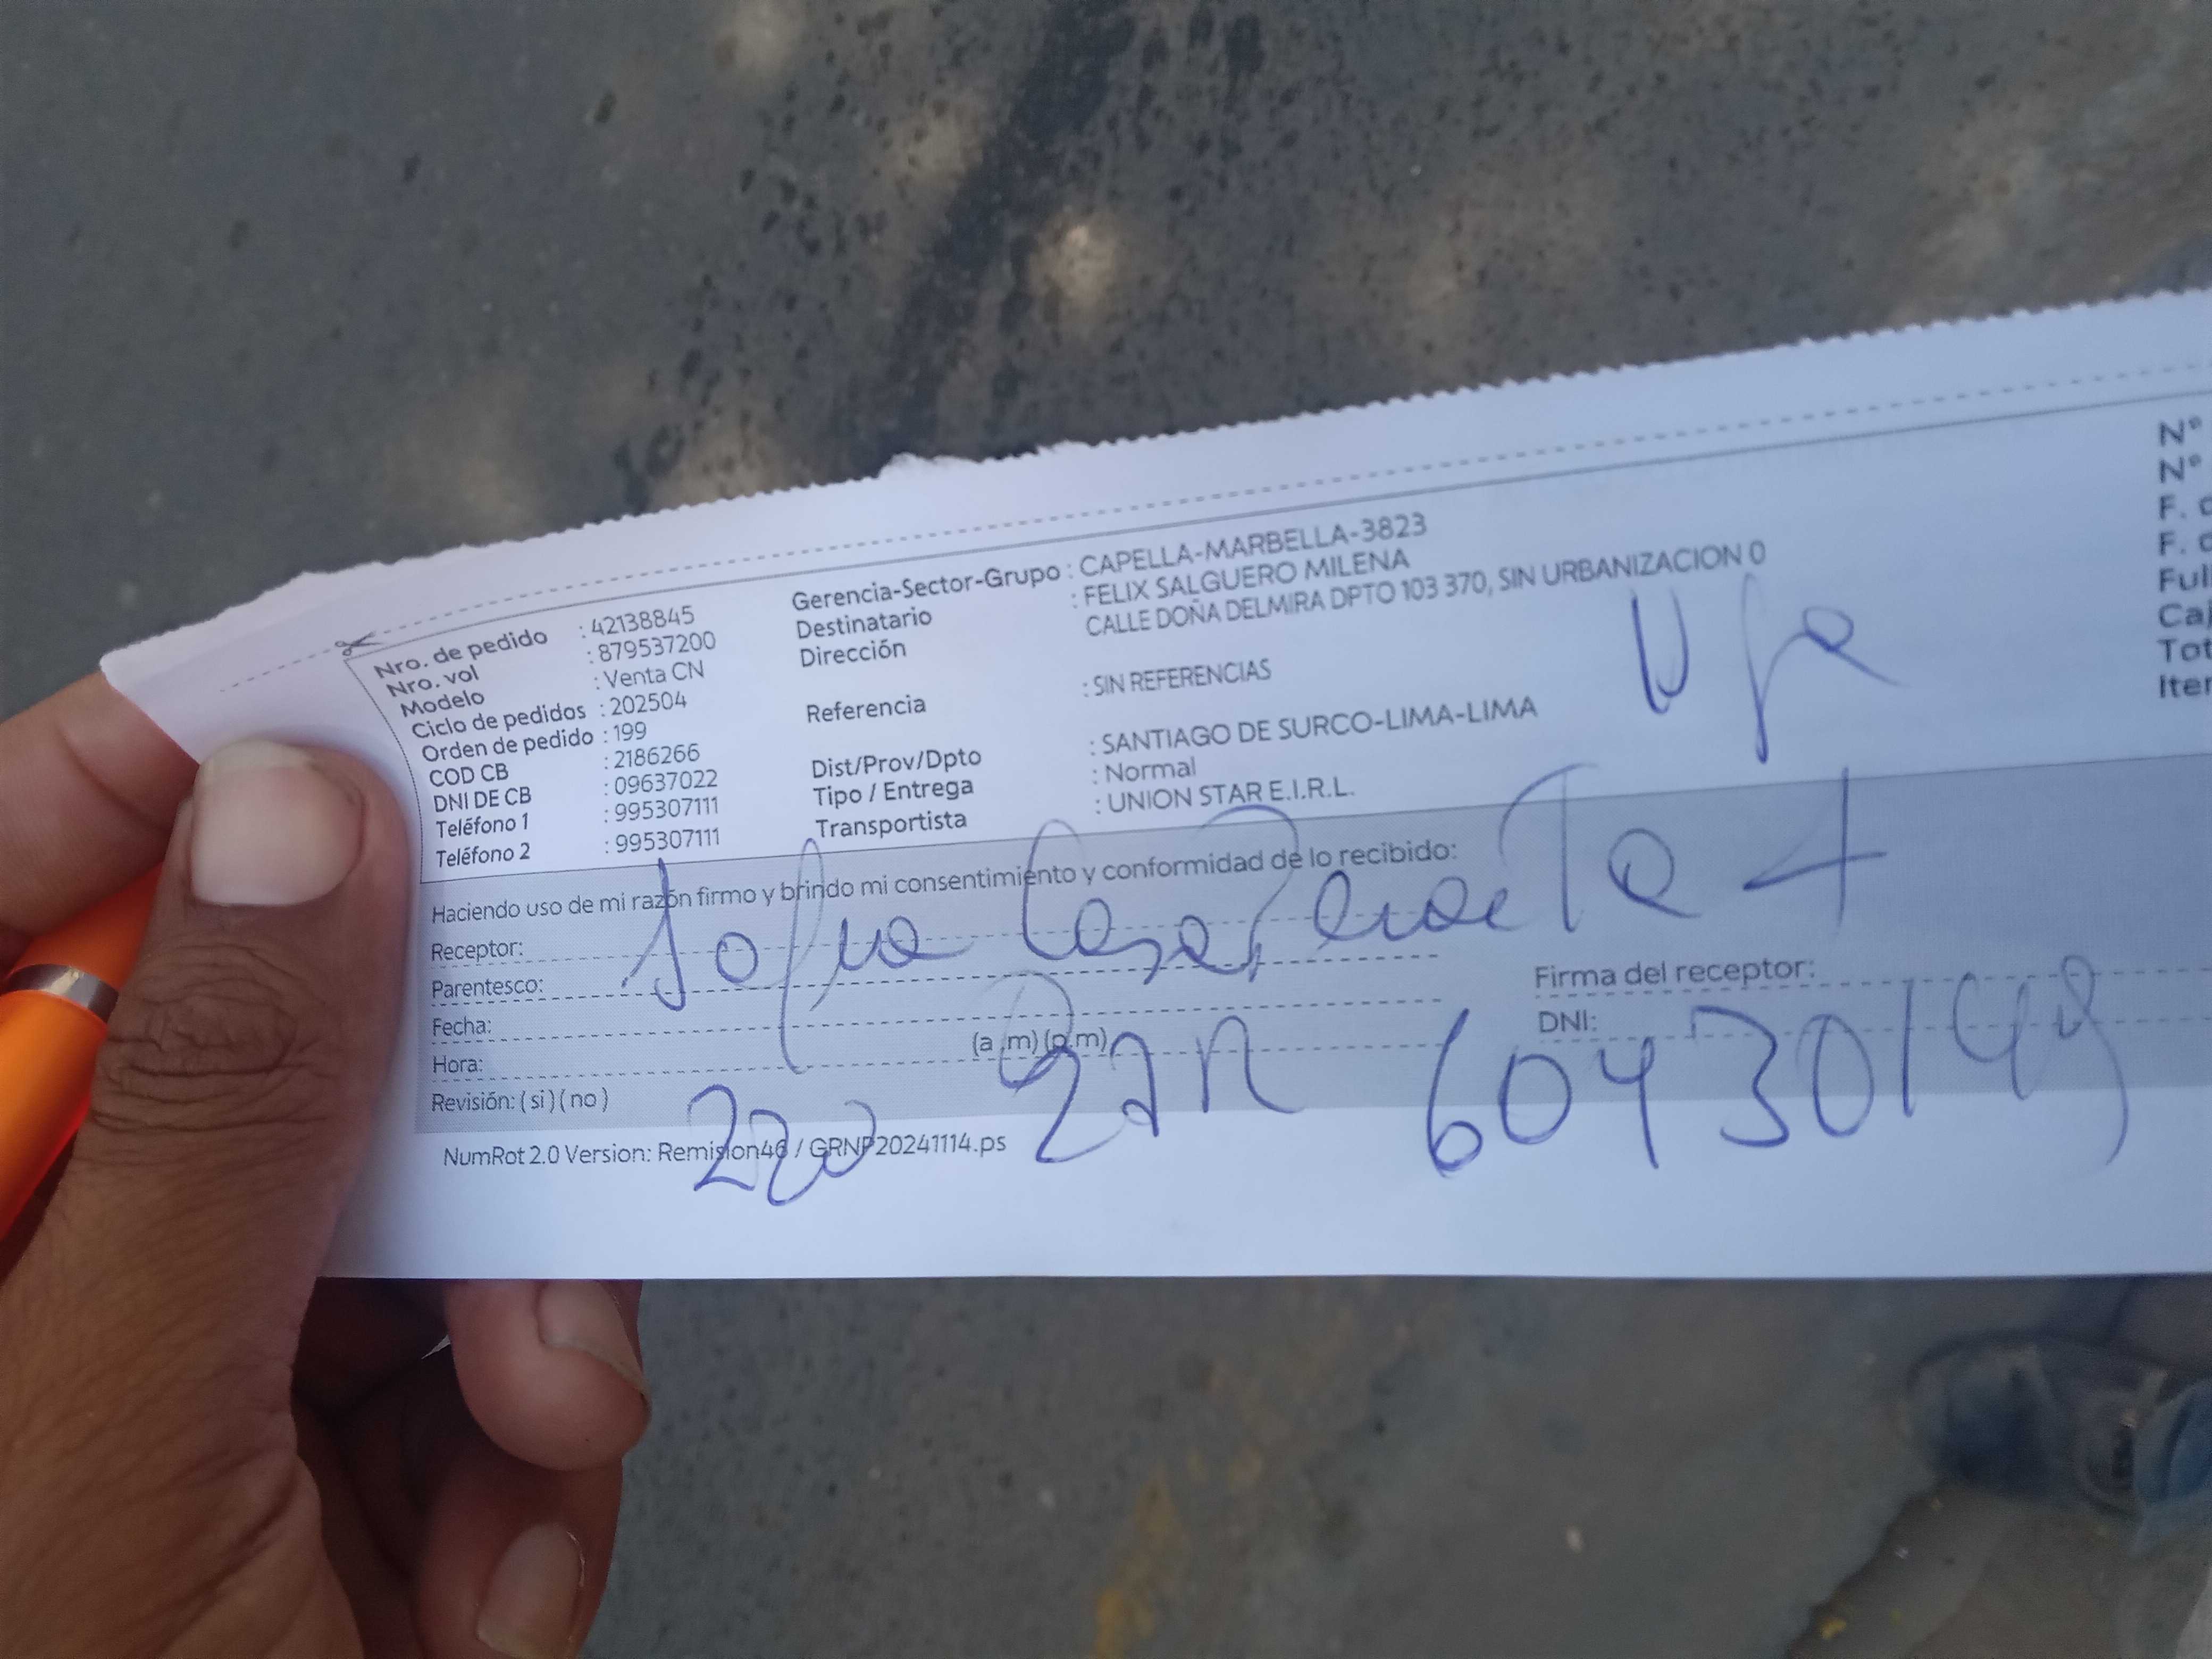 Nro. de pedido : 42138845
Nro. vol : 879537200
Modelo : Venta CN
Ciclo de pedidos : 202504
Orden de pedido : 199
COD CB : 2186266
DNI DE CB : 09637022
Teléfono 1 : 995307111
Teléfono 2 : 995307111
Gerencia-Sector-Grupo : CAPELLA-MARBELLA-3823
Destinatario : FELIX SALGUERO MILENA
Dirección CALLE DOÑA DELMIRA DPTO 103 370, SIN URBANIZACION 0
Referencia : SIN REFERENCIAS
Dist/Prov/Dpto : SANTIAGO DE SURCO-LIMA-LIMA
Tipo / Entrega : Normal
Transportista : UNION STAR E.I.R.L.
N°
N°
F.
F.
Haciendo uso de mi razón firmo y brindo mi consentimiento y conformidad de lo recibido:
Receptor:
Parentesco:
Fecha:
Hora: (a.m) (p.m)
Revisión: ( si ) ( no )
Firma del receptor:
DNI:
60430149
NumRot 2.0 Version: Remision46 / GRNP20241114.ps